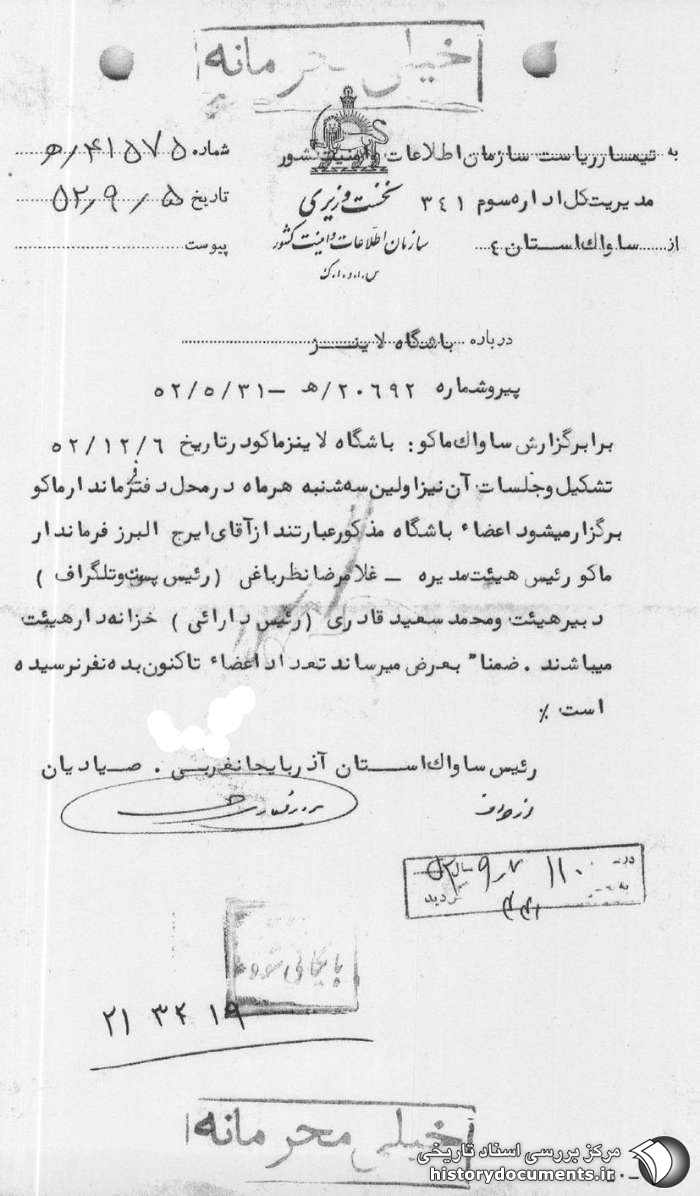 خیلی محرمانه
به تیمسار ریاست سازمان اطلاعات و امنیت کشور
شماره ۴۱۵۷۵/ه
مدیریت کل اداره سوم ۳۴۱
نخست وزیری
تاریخ ۵۲/۹/۵
از ساواک استان ۴
سازمان اطلاعات و امنیت کشور
پیوست
س.ا.و.ا.ک
درباره باشگاه لاینز
پیرو شماره ۲۰۶۹۲/هـ - ۵۲/۵/۳۱
برابر گزارش ساواک ماکو: باشگاه لاینز ماکو در تاریخ ۵۲/۱۲/۶
تشکیل و جلسات آن نیز اولین سه‌شنبه هر ماه در محل دفتر فرماندار ماکو
برگزار میشود اعضاء باشگاه مذکور عبارتند از آقای ایرج البرز فرماندار
ماکو رئیس هیئت مدیره - غلامرضا نظرباغی (رئیس پست و تلگراف)
دبیر هیئت و محمد سعید قادری (رئیس دارائی) خزانه‌دار هیئت
میباشند. ضمناً بعرض میرساند تعداد اعضاء تاکنون بده نفر نرسیده
است ٪
رئیس ساواک استان آذربایجانغربی. صیادیان
از طرف
سال ۵۲
گردید
بایگانی شود
۱۹ ۳۴ ۲۱
خیلی محرمانه
مرکز بررسی اسناد تاریخی
historydocuments.ir